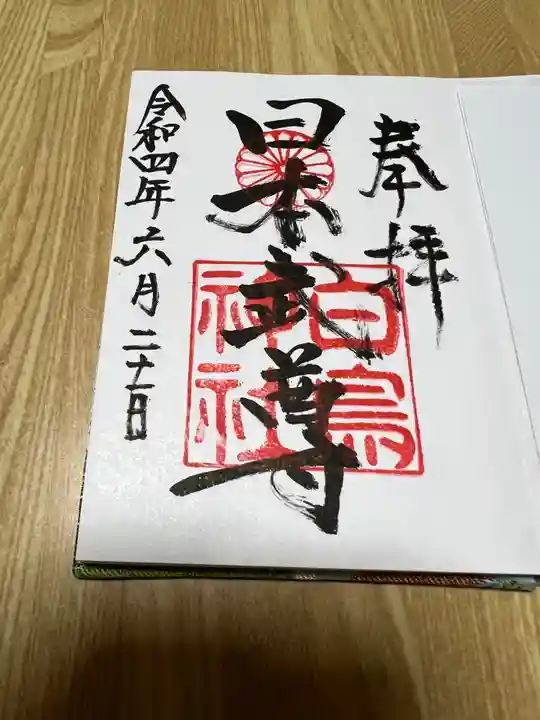 奉拝
日本武尊
白鳥
神社
令和四年六月二十一日